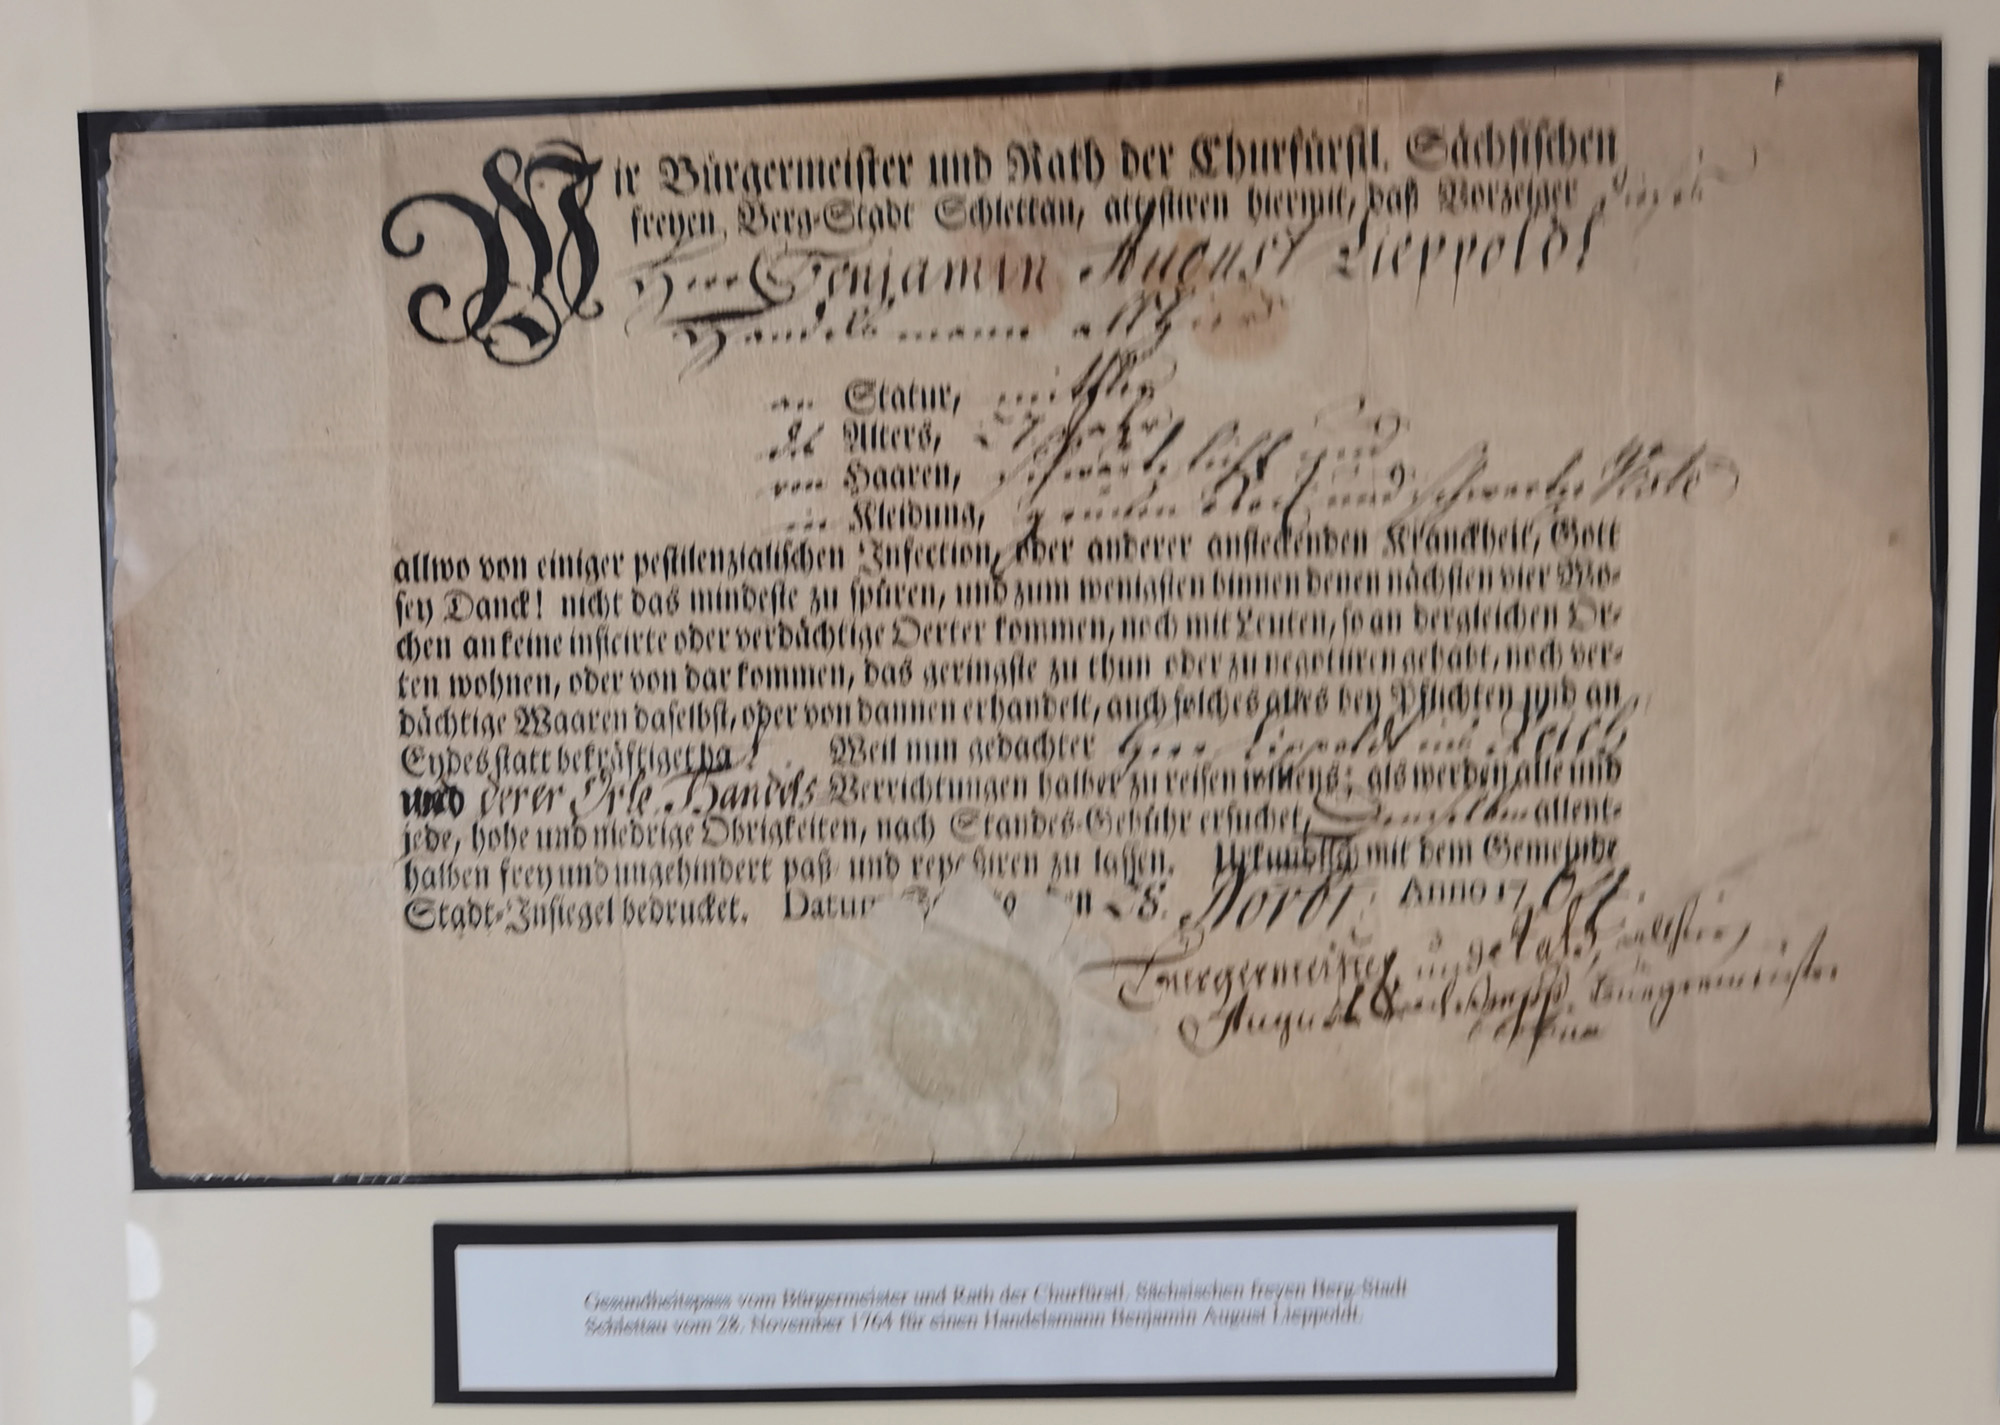 Wir Bürgermeister und Rath der Churfürstl. Sächsischen
freyen Berg-Stadt Schlettau, attestiren hiermit, daß Vorzeiger
Herr Benjamin August Lieppoldt
Handelsmann allhier
an Statur, mittler
des Alters, 27 Jahr
von Haaren, schwartz und
in Kleidung, grünen Rock und schwartze Weste
allwo von einiger pestilenzialischen Infection, oder anderer ansteckenden Kranckheit, Gott
sey Danck! nicht das mindeste zu spüren, und zum wenigsten binnen denen nächsten vier Wo-
chen an keine inficirte oder verdächtige Oerter kommen, noch mit Leuten, so an dergleichen Or-
ten wohnen, oder von dar kommen, das geringste zu thun oder zu negotiiren gehabt, noch ver-
dächtige Waaren daselbst, oder von dannen erhandelt, auch solches alles bey Pflichten und an
Eydes statt bekräftiget ha Weil nun gedachter Herr Lieppoldt
und derer Orte Handels Verrichtungen halber zu reisen willens; als werden alle und
jede, hohe und niedrige Obrigkeiten, nach Standes-Gebühr ersuchet, Denselben allent-
halben frey und ungehindert paß- und repassiren zu lassen. Urkundlich mit dem Gemeinde
Stadt-Insiegel bedrucket. Datum den 28. Novbr. Anno 1764.
Bürgermeister und Rath
August Bürgermeister
Gesundheitspass vom Bürgermeister und Rath der Churfürstl. Sächsischen freyen Berg-Stadt
Schlettau vom 28. November 1764 für einen Handelsmann Benjamin August Lieppoldt.